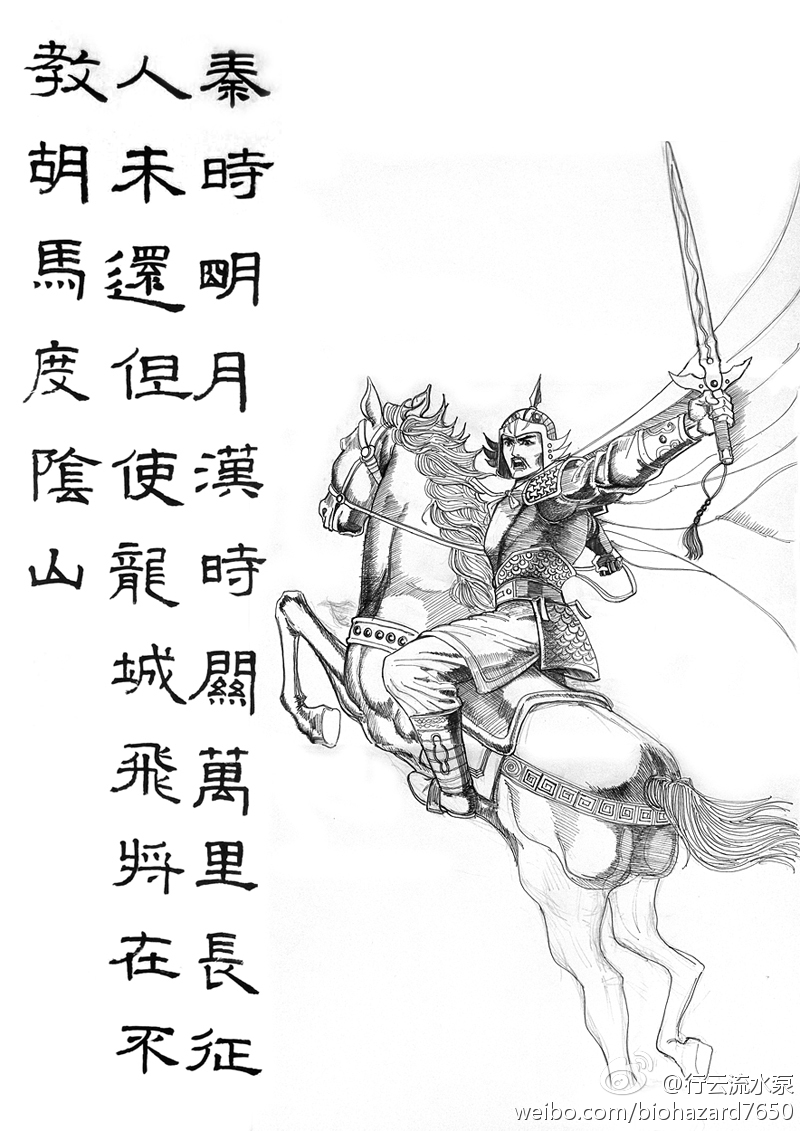 秦時明月漢時關萬里長征
人未還但使龍城飛將在不
教胡馬度陰山
@行云流水泵
weibo.com/biohazard7650